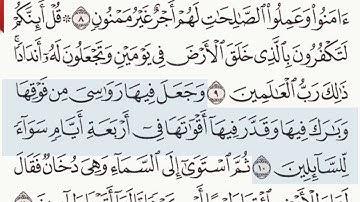 ءَامَنُوا۟ وَعَمِلُوا۟ ٱلصَّٰلِحَٰتِ لَهُمْ أَجْرٌ غَيْرُ مَمْنُونٍ ٨ ۞ قُلْ أَئِنَّكُمْ
لَتَكْفُرُونَ بِٱلَّذِى خَلَقَ ٱلْأَرْضَ فِى يَوْمَيْنِ وَتَجْعَلُونَ لَهُۥٓ أَندَادًا ۚ
ذَٰلِكَ رَبُّ ٱلْعَٰلَمِينَ ٩ وَجَعَلَ فِيهَا رَوَٰسِىَ مِن فَوْقِهَا
وَبَٰرَكَ فِيهَا وَقَدَّرَ فِيهَآ أَقْوَٰتَهَا فِىٓ أَرْبَعَةِ أَيَّامٍ سَوَآءً
لِّلسَّآئِلِينَ ١٠ ثُمَّ ٱسْتَوَىٰٓ إِلَى ٱلسَّمَآءِ وَهِىَ دُخَانٌ فَقَالَ